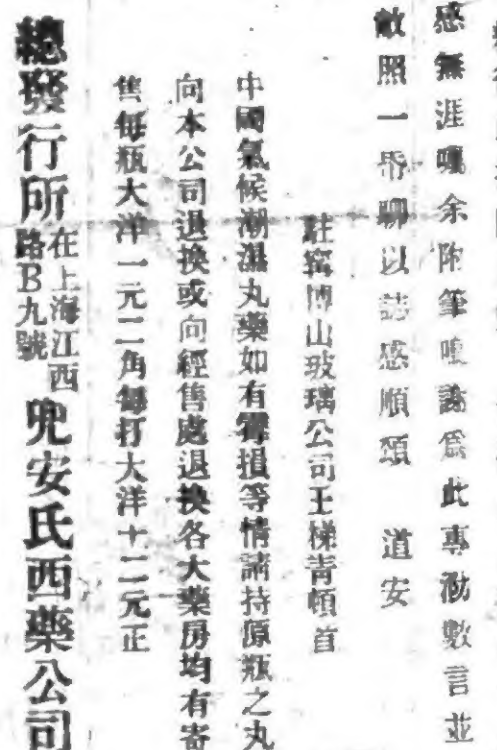 感無涯囑余附筆鳴謝爲此專泐數言並
敝照一帋聊以誌感順頌　道安
駐甯博山玻璃公司王梯青頓首
中國氣候潮濕丸藥如有霉損等情請持原瓶之丸
向本公司退換或向經售處退換各大藥房均有寄
售每瓶大洋一元二角每打大洋十二元正
總發行所在上海江西路B九號兜安氏西藥公司